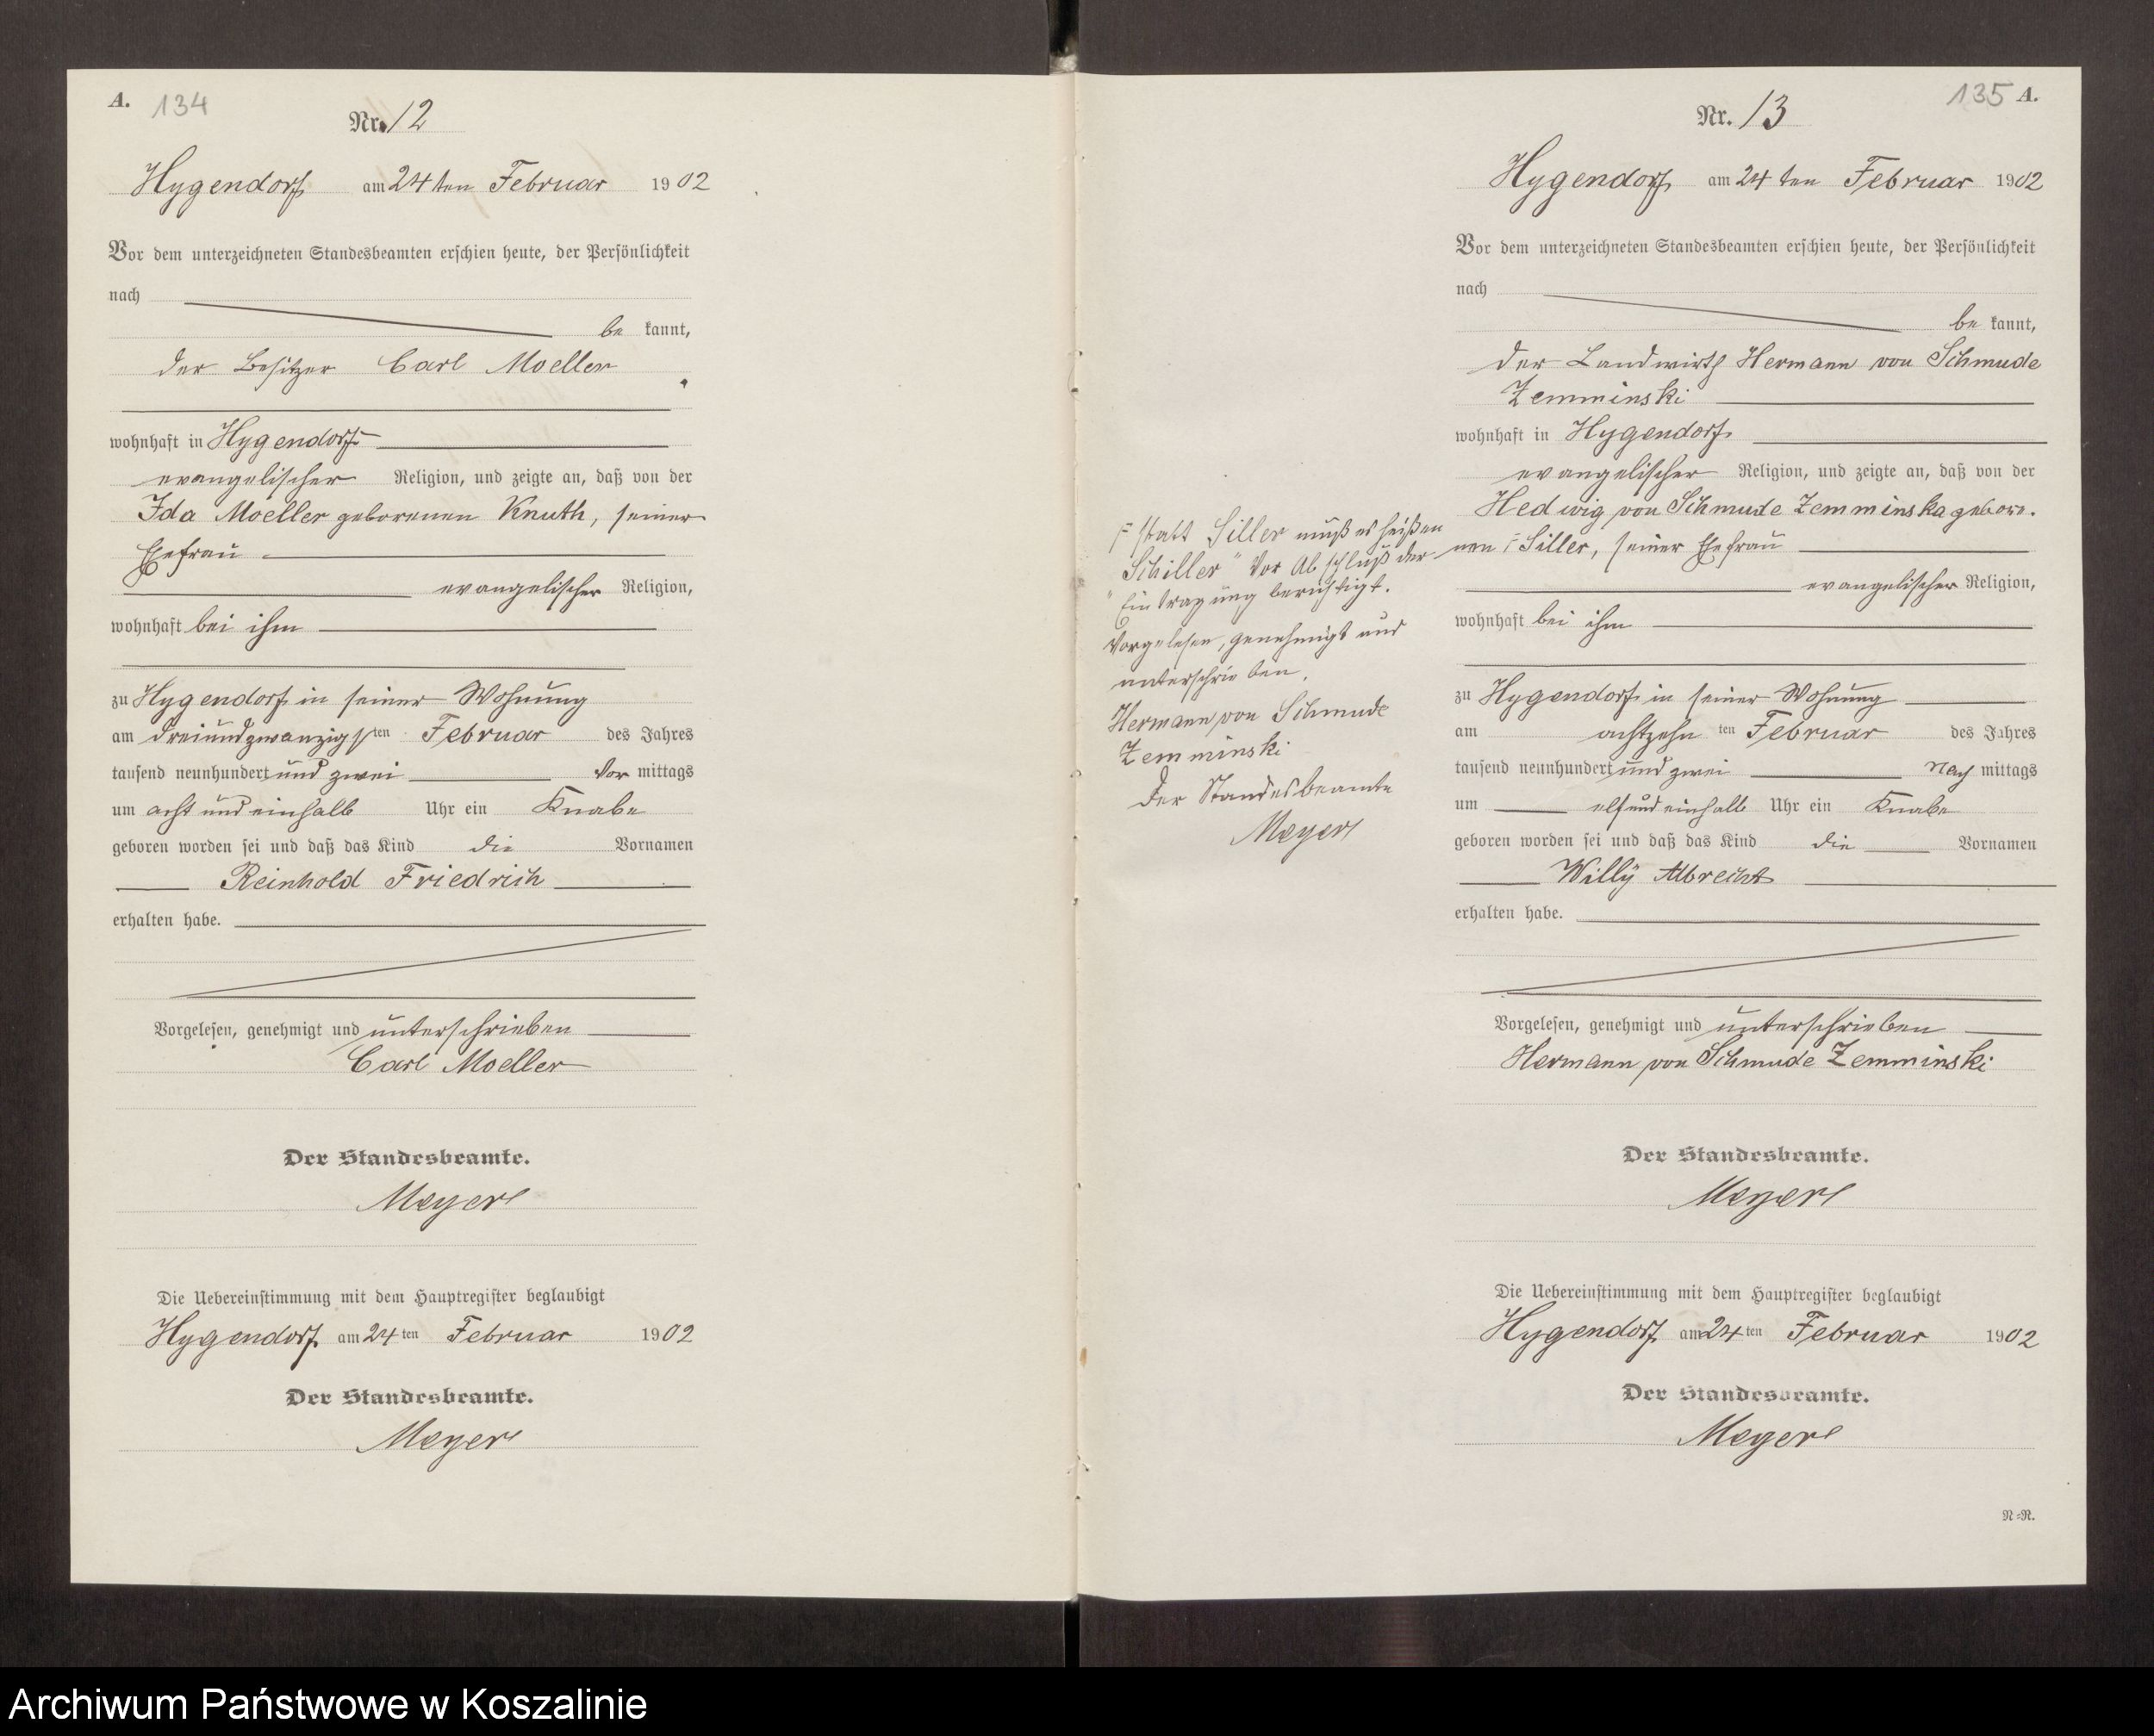 A. 134
Nr. 12
Hygendorf am 24 ten Februar 1902
Vor dem unterzeichneten Standesbeamten erschien heute, der Persönlichkeit
nach
be kannt,
der Besitzer Carl Moeller
wohnhaft in Hygendorf
evangelischer Religion, und zeigte an, daß von der
Ida Moeller geborenen Knuth, seiner
Ehefrau
evangelischer Religion,
wohnhaft bei ihm
zu Hygendorf in seiner Wohnung
am dreiundzwanzigsten Februar des Jahres
tausend neunhundert und zwei Vor mittags
um acht und einhalb Uhr ein Knabe
geboren worden sei und daß das Kind die Vornamen
Reinhold Friedrich
erhalten habe.
Vorgelesen, genehmigt und unterschrieben
Carl Moeller
Der Standesbeamte.
Meyer
Die Uebereinstimmung mit dem Hauptregister beglaubigt
Hygendorf am 24 ten Februar 1902
Der Standesbeamte.
Meyer
F statt Siller muß es heißen
"Schiller" Vor Abschluß der
Eintragung berichtigt.
Vorgelesen, genehmigt und
unterschrieben.
Hermann von Schmude
Zemminski
Der Standesbeamte
Meyer
135 A.
Nr. 13
Hygendorf am 24 ten Februar 1902
Vor dem unterzeichneten Standesbeamten erschien heute, der Persönlichkeit
nach
be kannt,
der Landwirth Hermann von Schmude
Zemminski
wohnhaft in Hygendorf
evangelischer Religion, und zeigte an, daß von der
Hedwig von Schmude Zemminska gebore-
nen F Siller, seiner Ehefrau
evangelischer Religion,
wohnhaft bei ihm
zu Hygendorf in seiner Wohnung
am achtzehn ten Februar des Jahres
tausend neunhundert und zwei Nach mittags
um elf und einhalb Uhr ein Knabe
geboren worden sei und daß das Kind die Vornamen
Willÿ Albrecht
erhalten habe.
Vorgelesen, genehmigt und unterschrieben
Hermann von Schmude Zemminski
Der Standesbeamte.
Meyer
Die Uebereinstimmung mit dem Hauptregister beglaubigt
Hygendorf am 24 ten Februar 1902
Der Standesbeamte.
Meyer
N=R.
Archiwum Państwowe w Koszalinie